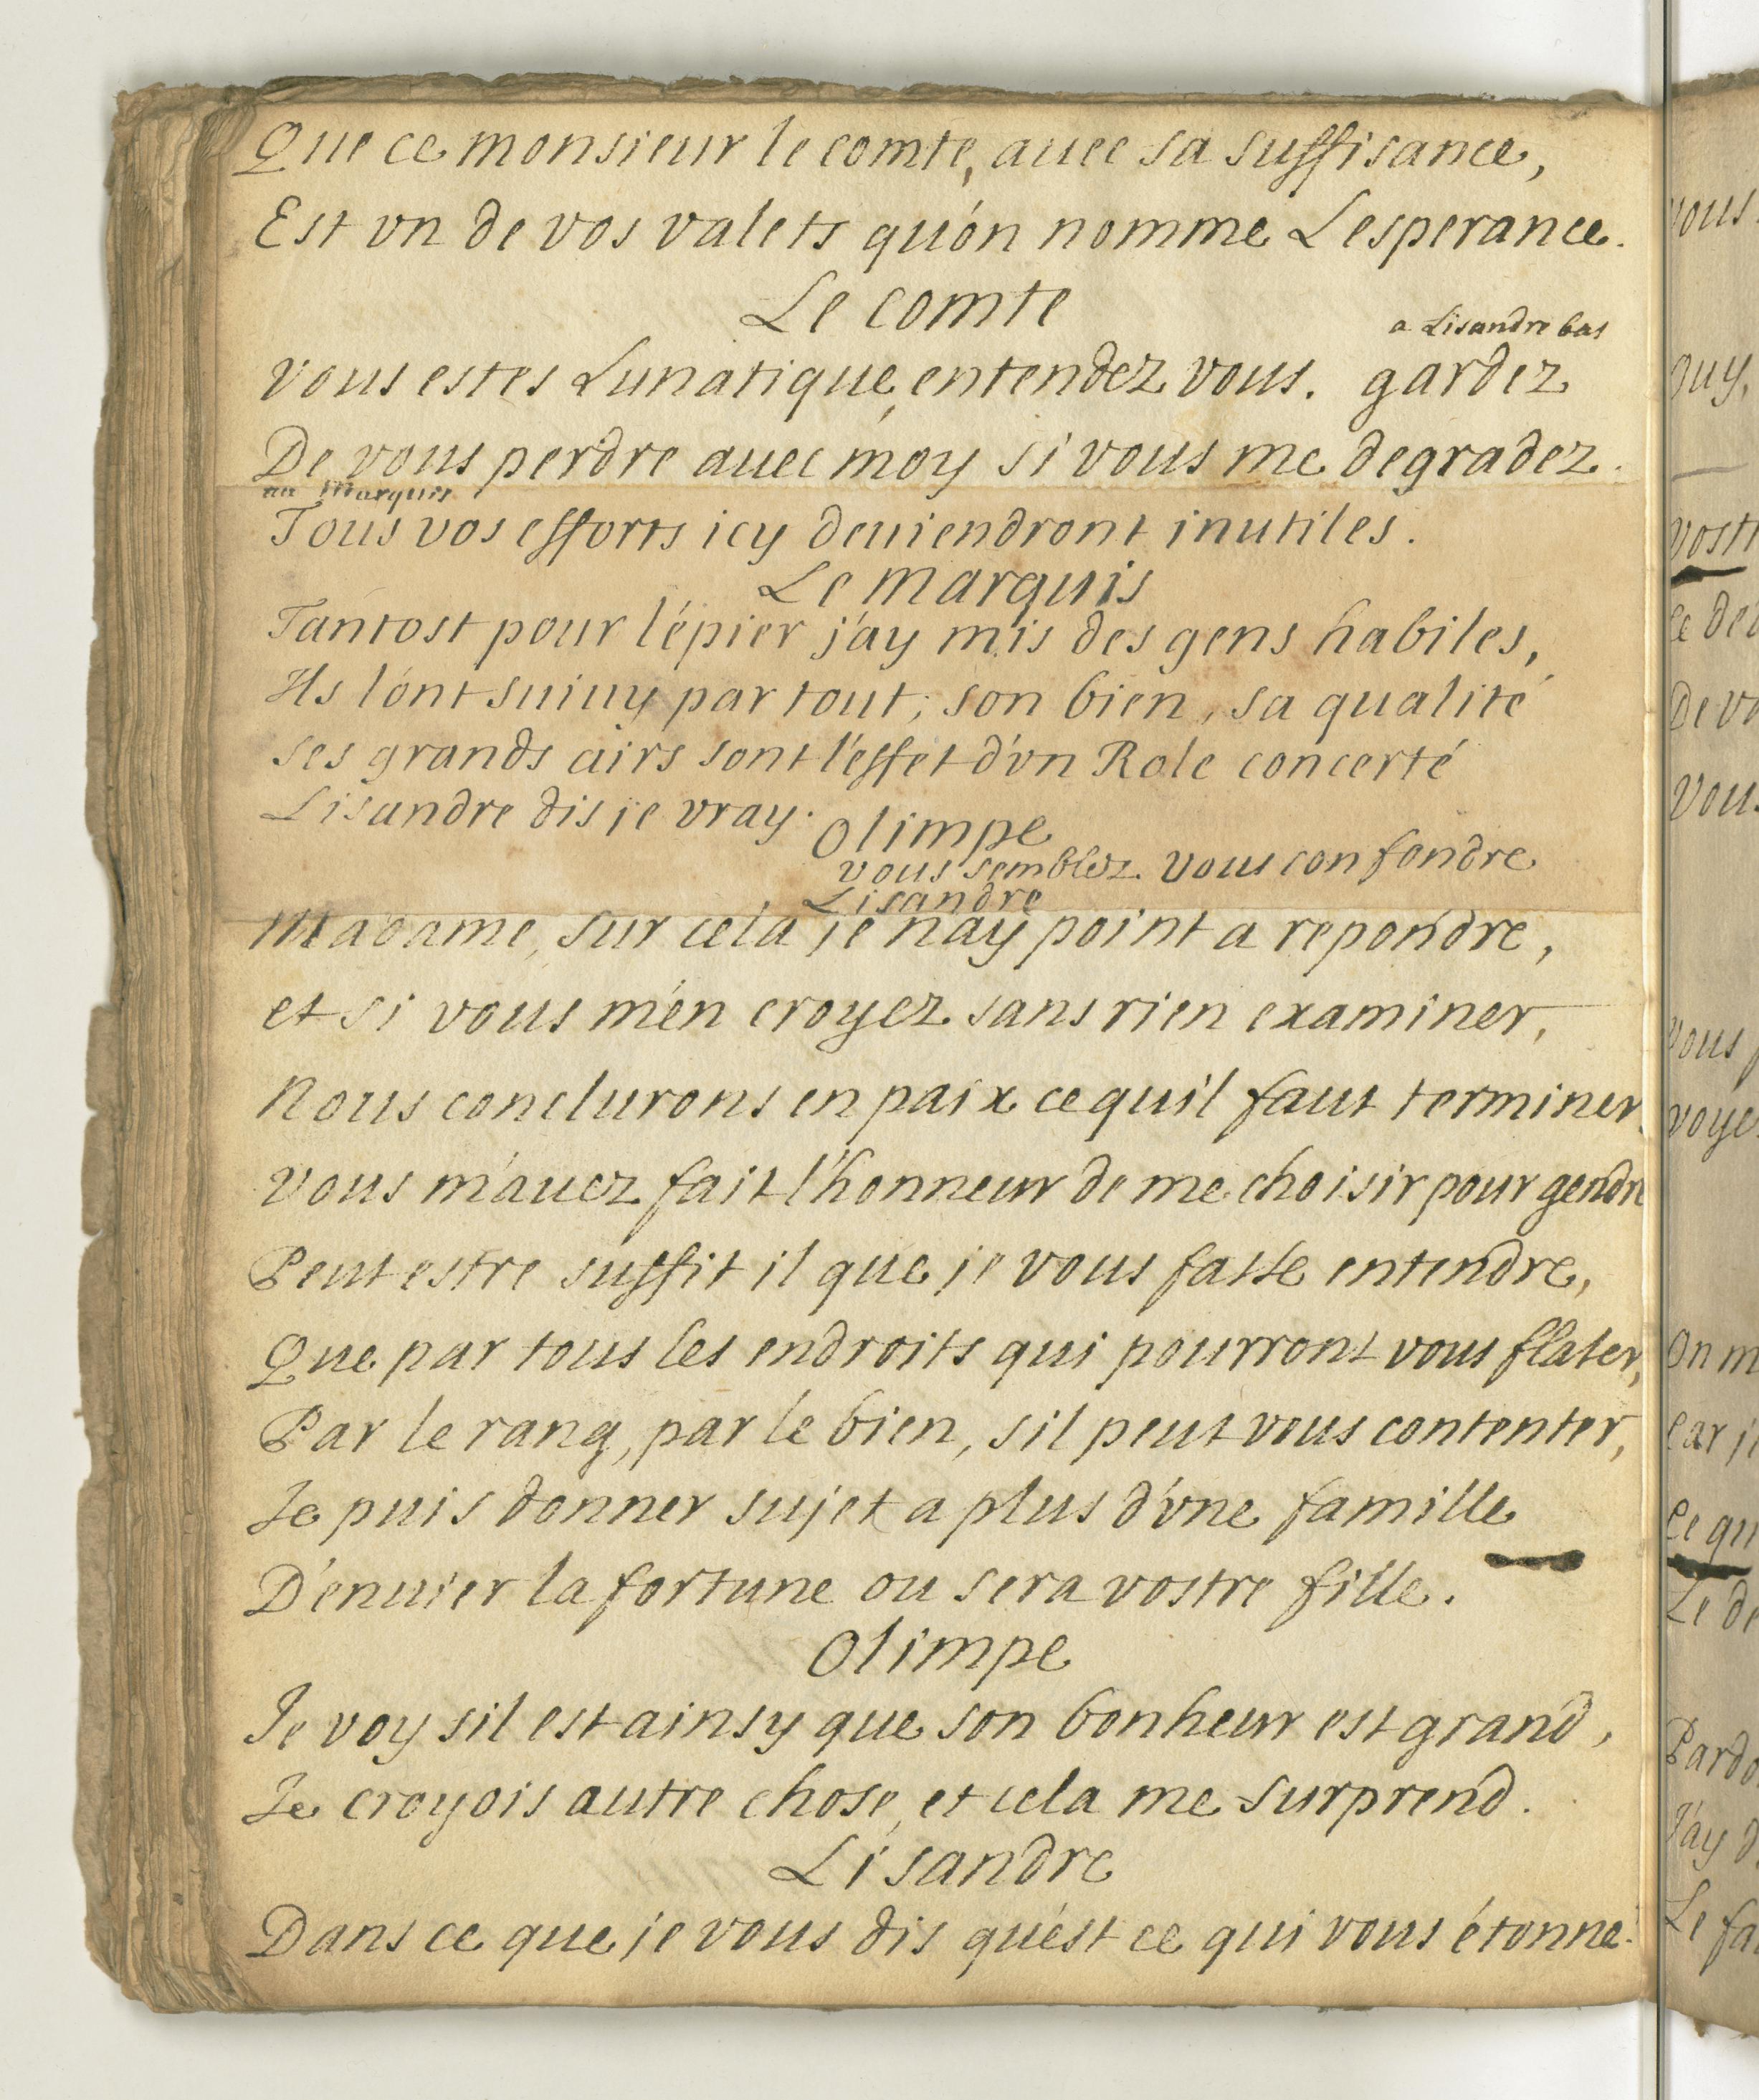 Que ce monsieur le comte, auec sa suffisance,
Est vn de vos valets qu'on nomme Lesperance.
Le comte
a Lisandre bas
vous estes Lunatique, entendez vous. gardez
De vous perdre auec moy si vous me degradez.
au Marquis
Tous vos efforts icy deuiendront inutiles.
Le marquis
Tantost pour l'épier j'ay mis des gens habiles,
Ils l'ont suiuy par tout; son bien, sa qualité
ses grands airs sont l'effet d'vn Role concerté
Lisandre dis je vray.
Olimpe
vous semblez vous confondre
Lisandre
Madame, sur cela je n'ay point a repondre,
et si vous m'en croyez sans rien examiner,
Nous conclurons en paix ce quil faut terminer.
vous m'auez fait l'honneur de me choisir pour gendre
Peut estre suffit il que je vous fasse entendre,
Que par tous les endroits qui pourront vous flater,
Par le rang, par le bien, sil peut vous contenter,
Je puis donner sujet a plus d'vne famille
D'enuier la fortune ou sera vostre fille.
Olimpe
Je voy sil est ainsy que son bonheur est grand,
Je croyois autre chose, et cela me surprend.
Lisandre
Dans ce que je vous dis qu'est ce qui vous étonne.
vous
ouy,
vost
ce de
De vo
vous
vous
voye
On m
Car j
Ce qu
Le de
Pardo
J'ay d
Le fa